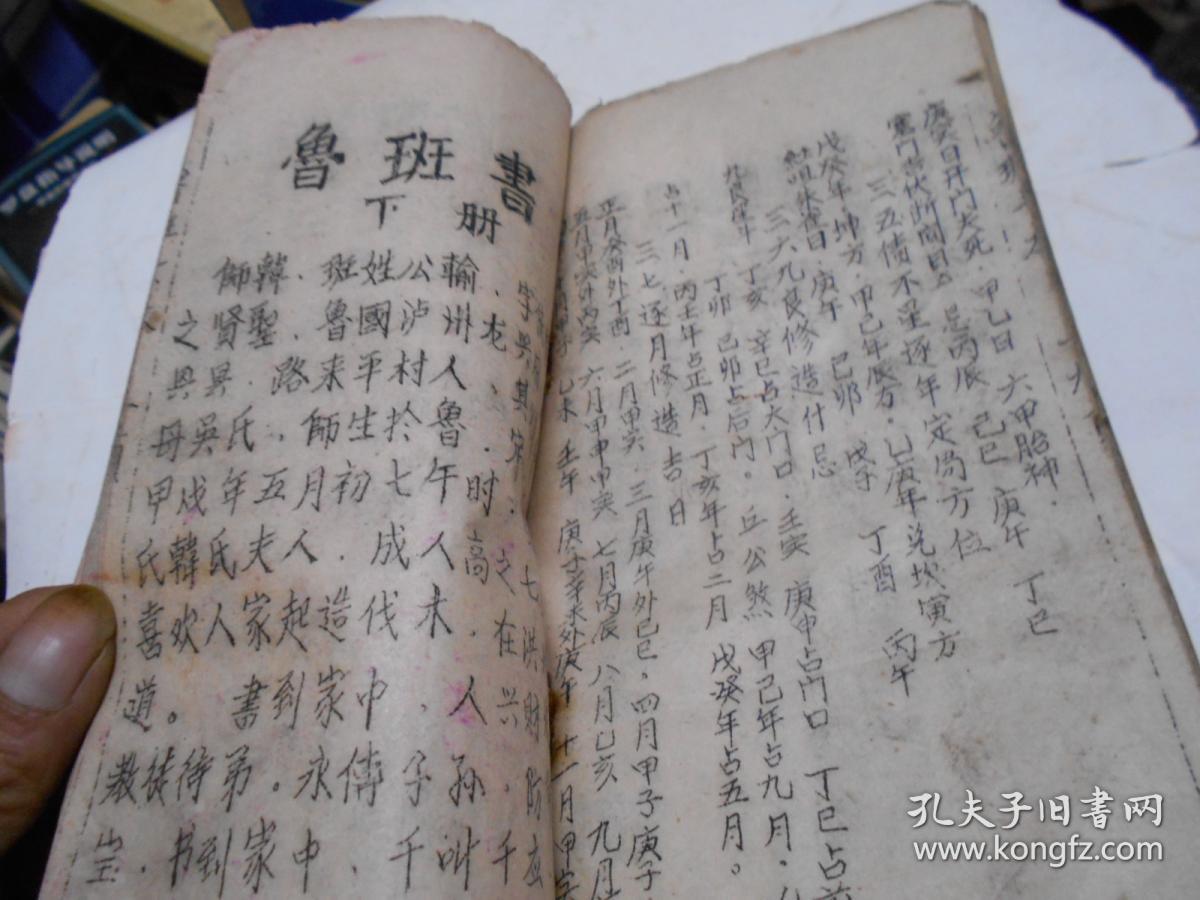 魯班書
下册
師韓.班姓公輸.字
之賢聖.魯國泸州.龙
與昇.路來平村人
母吳氏.師生於魯
甲戍年五月初七午时.
氏韓氏夫人.成人未高
喜欢人家起造伐木.在
道。書到家中.人兴財
教徒待弟。永傳子孙.防
宝.书到家中.千叫千应
庚癸日开门大死.甲乙日 六甲胎神.
塞门吉伏断闭日 忌丙辰 己巳 庚午 丁巳
三五债不星逐年定局方位
戊癸年坤方.甲己年辰方.乙庚年兑坎寅方
朱雀日 庚午 己卯 戊子 丁酉 丙午
三六九良修造什忌
九良年.丁亥 辛巳占大门口.壬寅 庚申占门口 丁巳占前
丁卯 己卯占后门.丘公煞 甲己年占九月.
占十一月.丙壬年占正月.丁亥年占二月 戊癸年占五月。
三七逐月修造吉日
正月癸酉外丁酉 二月甲寅.三月庚午外己巳.四月甲子庚子
五月甲寅外丙寅 六月甲申申寅 七月丙辰 八月乙亥 九月
乙未 壬午 庚子辛未外庚午 十一月甲寅
孔夫子旧书网
www.kongfz.com